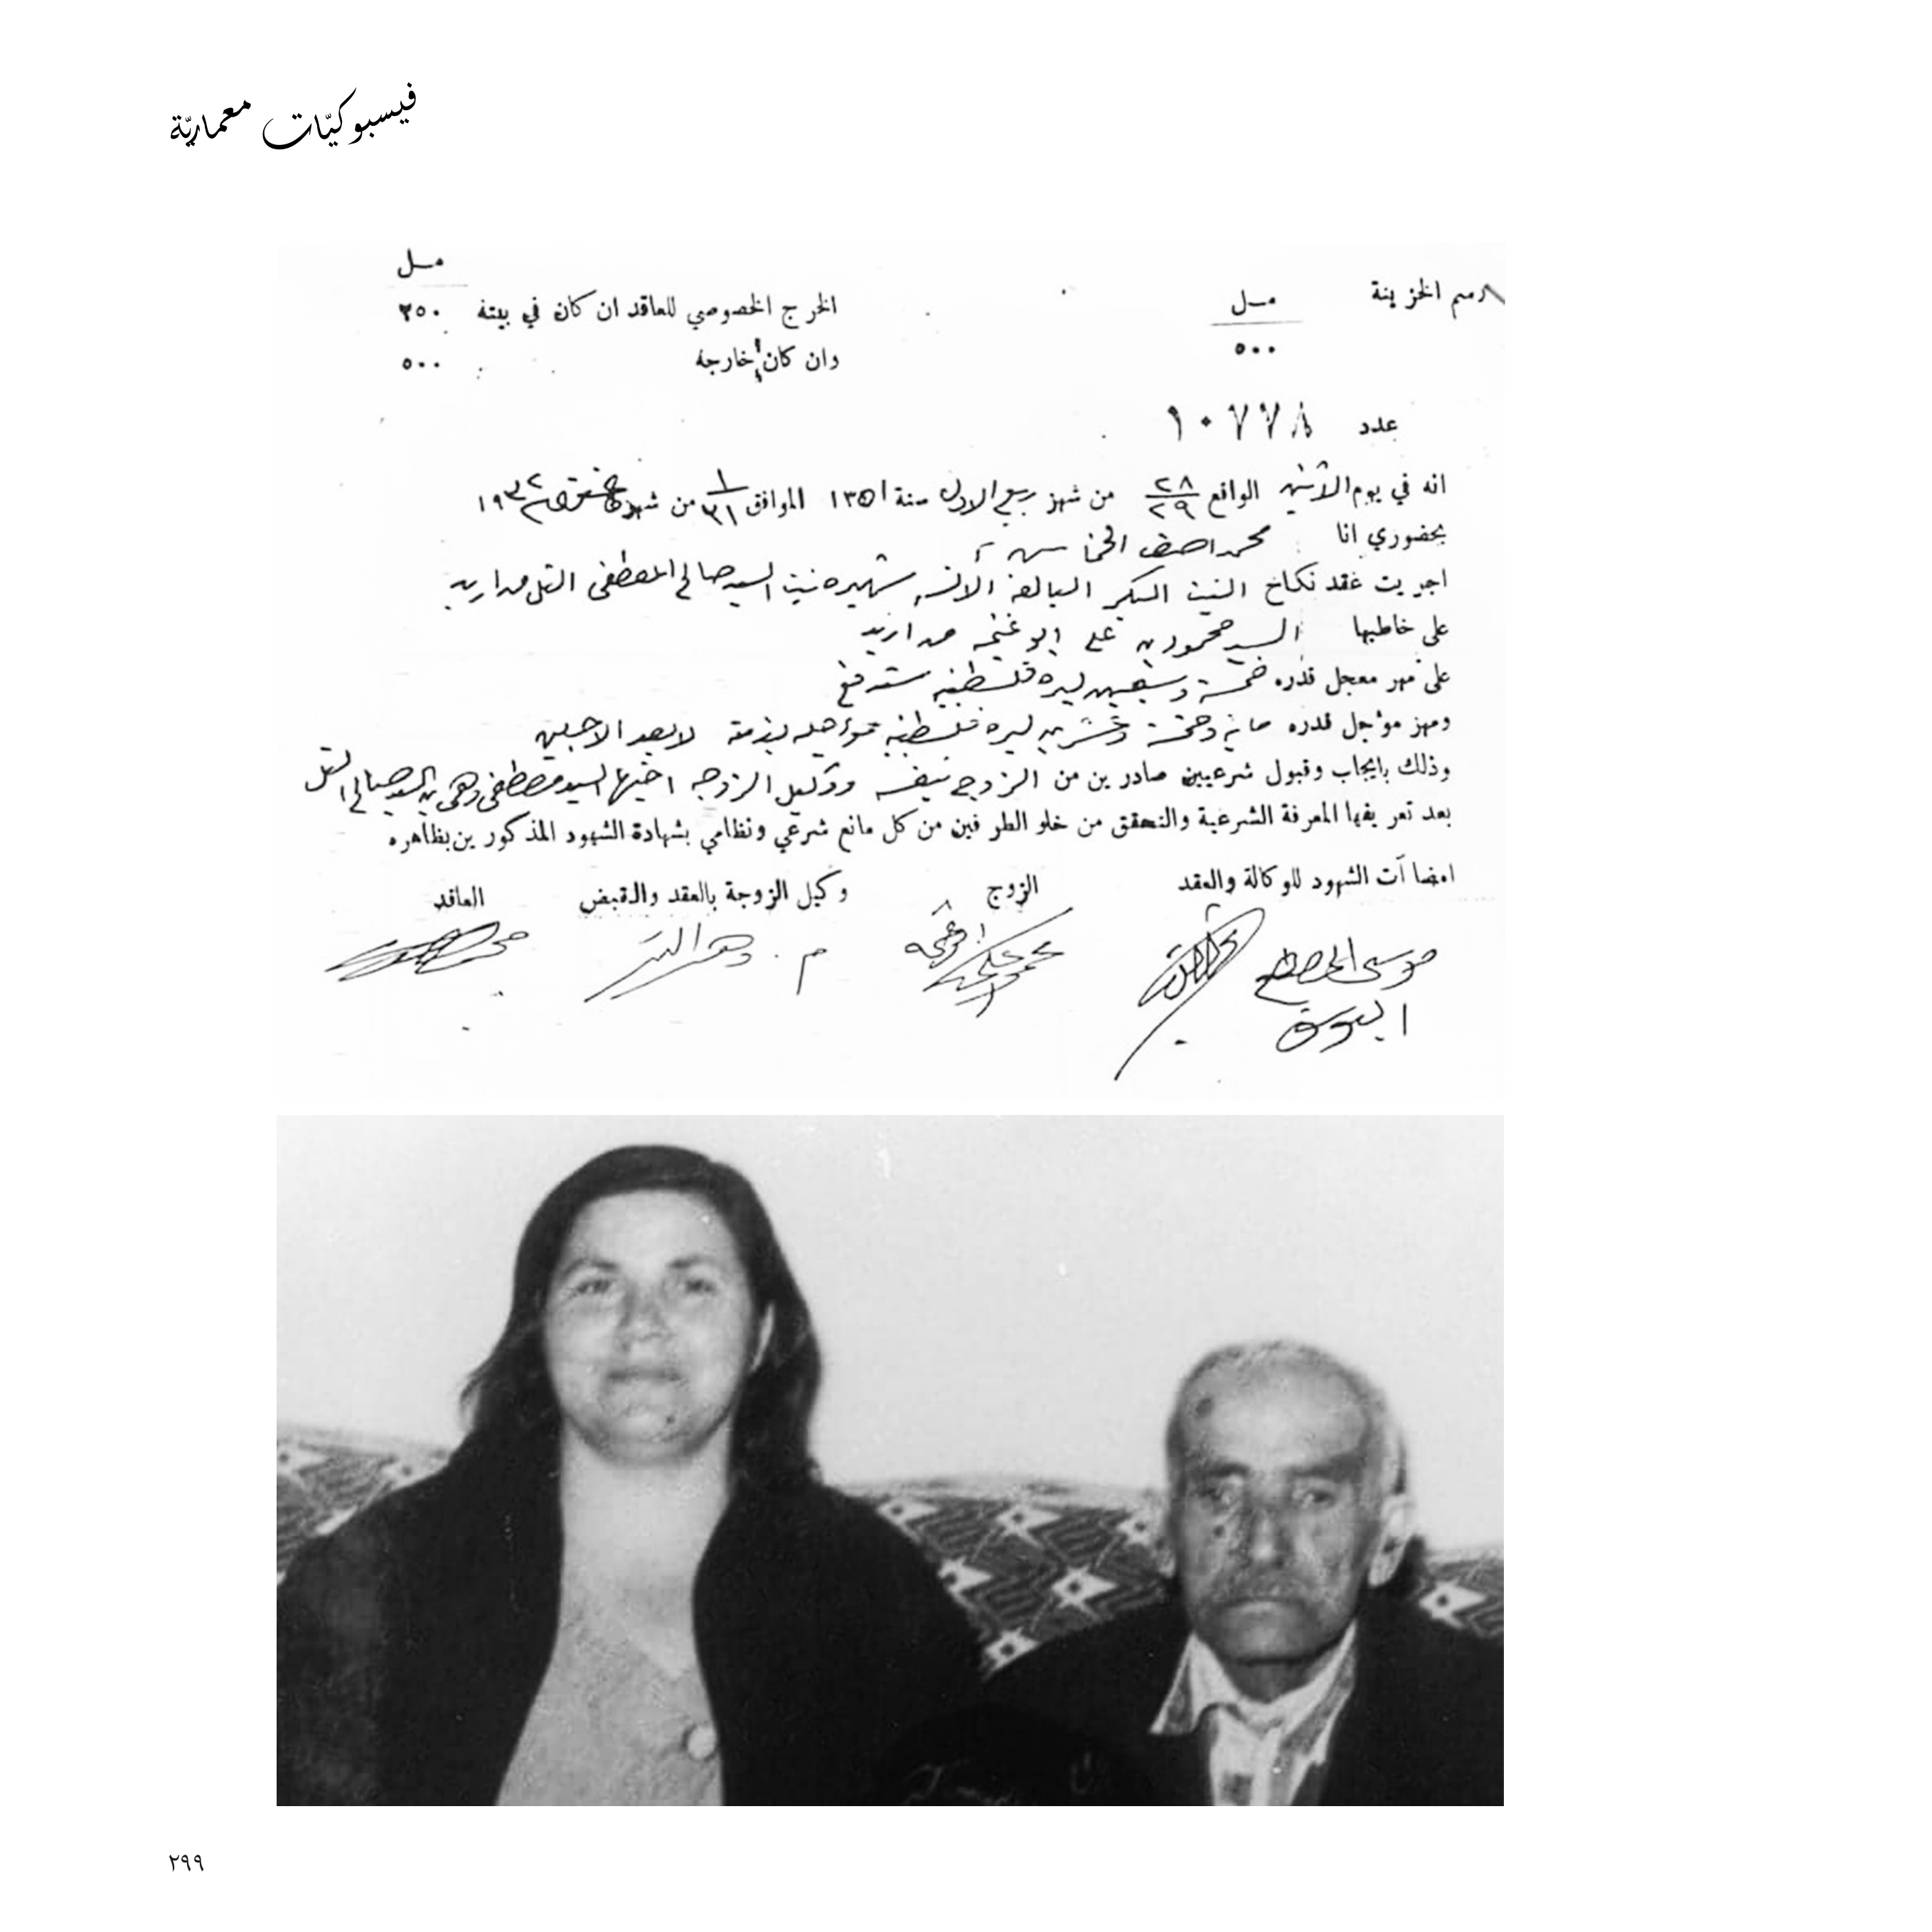 فيسبوكيّات معماريّة
رسم الخزينة
مـل
٥٠٠
مـل
الخرج الخصوصي للعاقد ان كان في بيته ٢٥٠
وان كان خارجه ٥٠٠
عدد ١٠٧٧٨
انه في يوم الاثنين الواقع ٢٨/٢٩ من شهر ربيع الاول سنة ١٣٥١ الموافق ١/٣١ من شهر ١٩٣٢
بحضوري انا محمد
اجريت عقد نكاح البنت البكر البالغة الآنسه شهيره بنت السيد صالح المصطفى التل من اربد
على خاطبها السيد محمود بن علي ابو غنيمه من اربد
على مهر معجل قدره خمسة وسبعين ليره فلسطينيه
ومهر مؤجل قدره مائة وخمسة وعشرين ليره فلسطينيه مؤجله بذمته لابعد الاجلين
وذلك بايجاب وقبول شرعيين صادرين من الزوج بنفسه ووكيل الزوجه اخيها السيد مصطفى وهبي بن السيد صالح التل
بعد تعريفها المعرفة الشرعية والتحقق من خلو الطرفين من كل مانع شرعي ونظامي بشهادة الشهود المذكورين بظاهره
امضاآت الشهود للوكالة والعقد
الزوج
وكيل الزوجة بالعقد والقبض
العاقد
موسى المصطفى
محمود علي ابو غنيمه
م. وهبي التل
٢٩٩